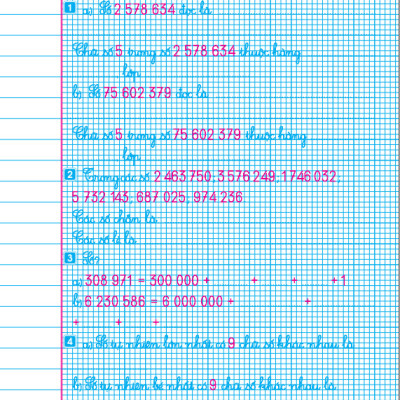 1 a) Số 2 578 634 đọc là
Chữ số 5 trong số 2 578 634 thuộc hàng
lớp
b) Số 75 602 379 đọc là
Chữ số 5 trong số 75 602 379 thuộc hàng
lớp
2 Trong các số 2 463 750; 3 576 249; 1 746 032;
5 732 143; 687 025; 974 236
Các số chẵn là
Các số lẻ là
3 Số?
a) 308 971 = 300 000 + + + + 1
b) 6 230 586 = 6 000 000 + +
+ + +
4 a) Số tự nhiên lớn nhất có 9 chữ số khác nhau là
b) Số tự nhiên bé nhất có 9 chữ số khác nhau là